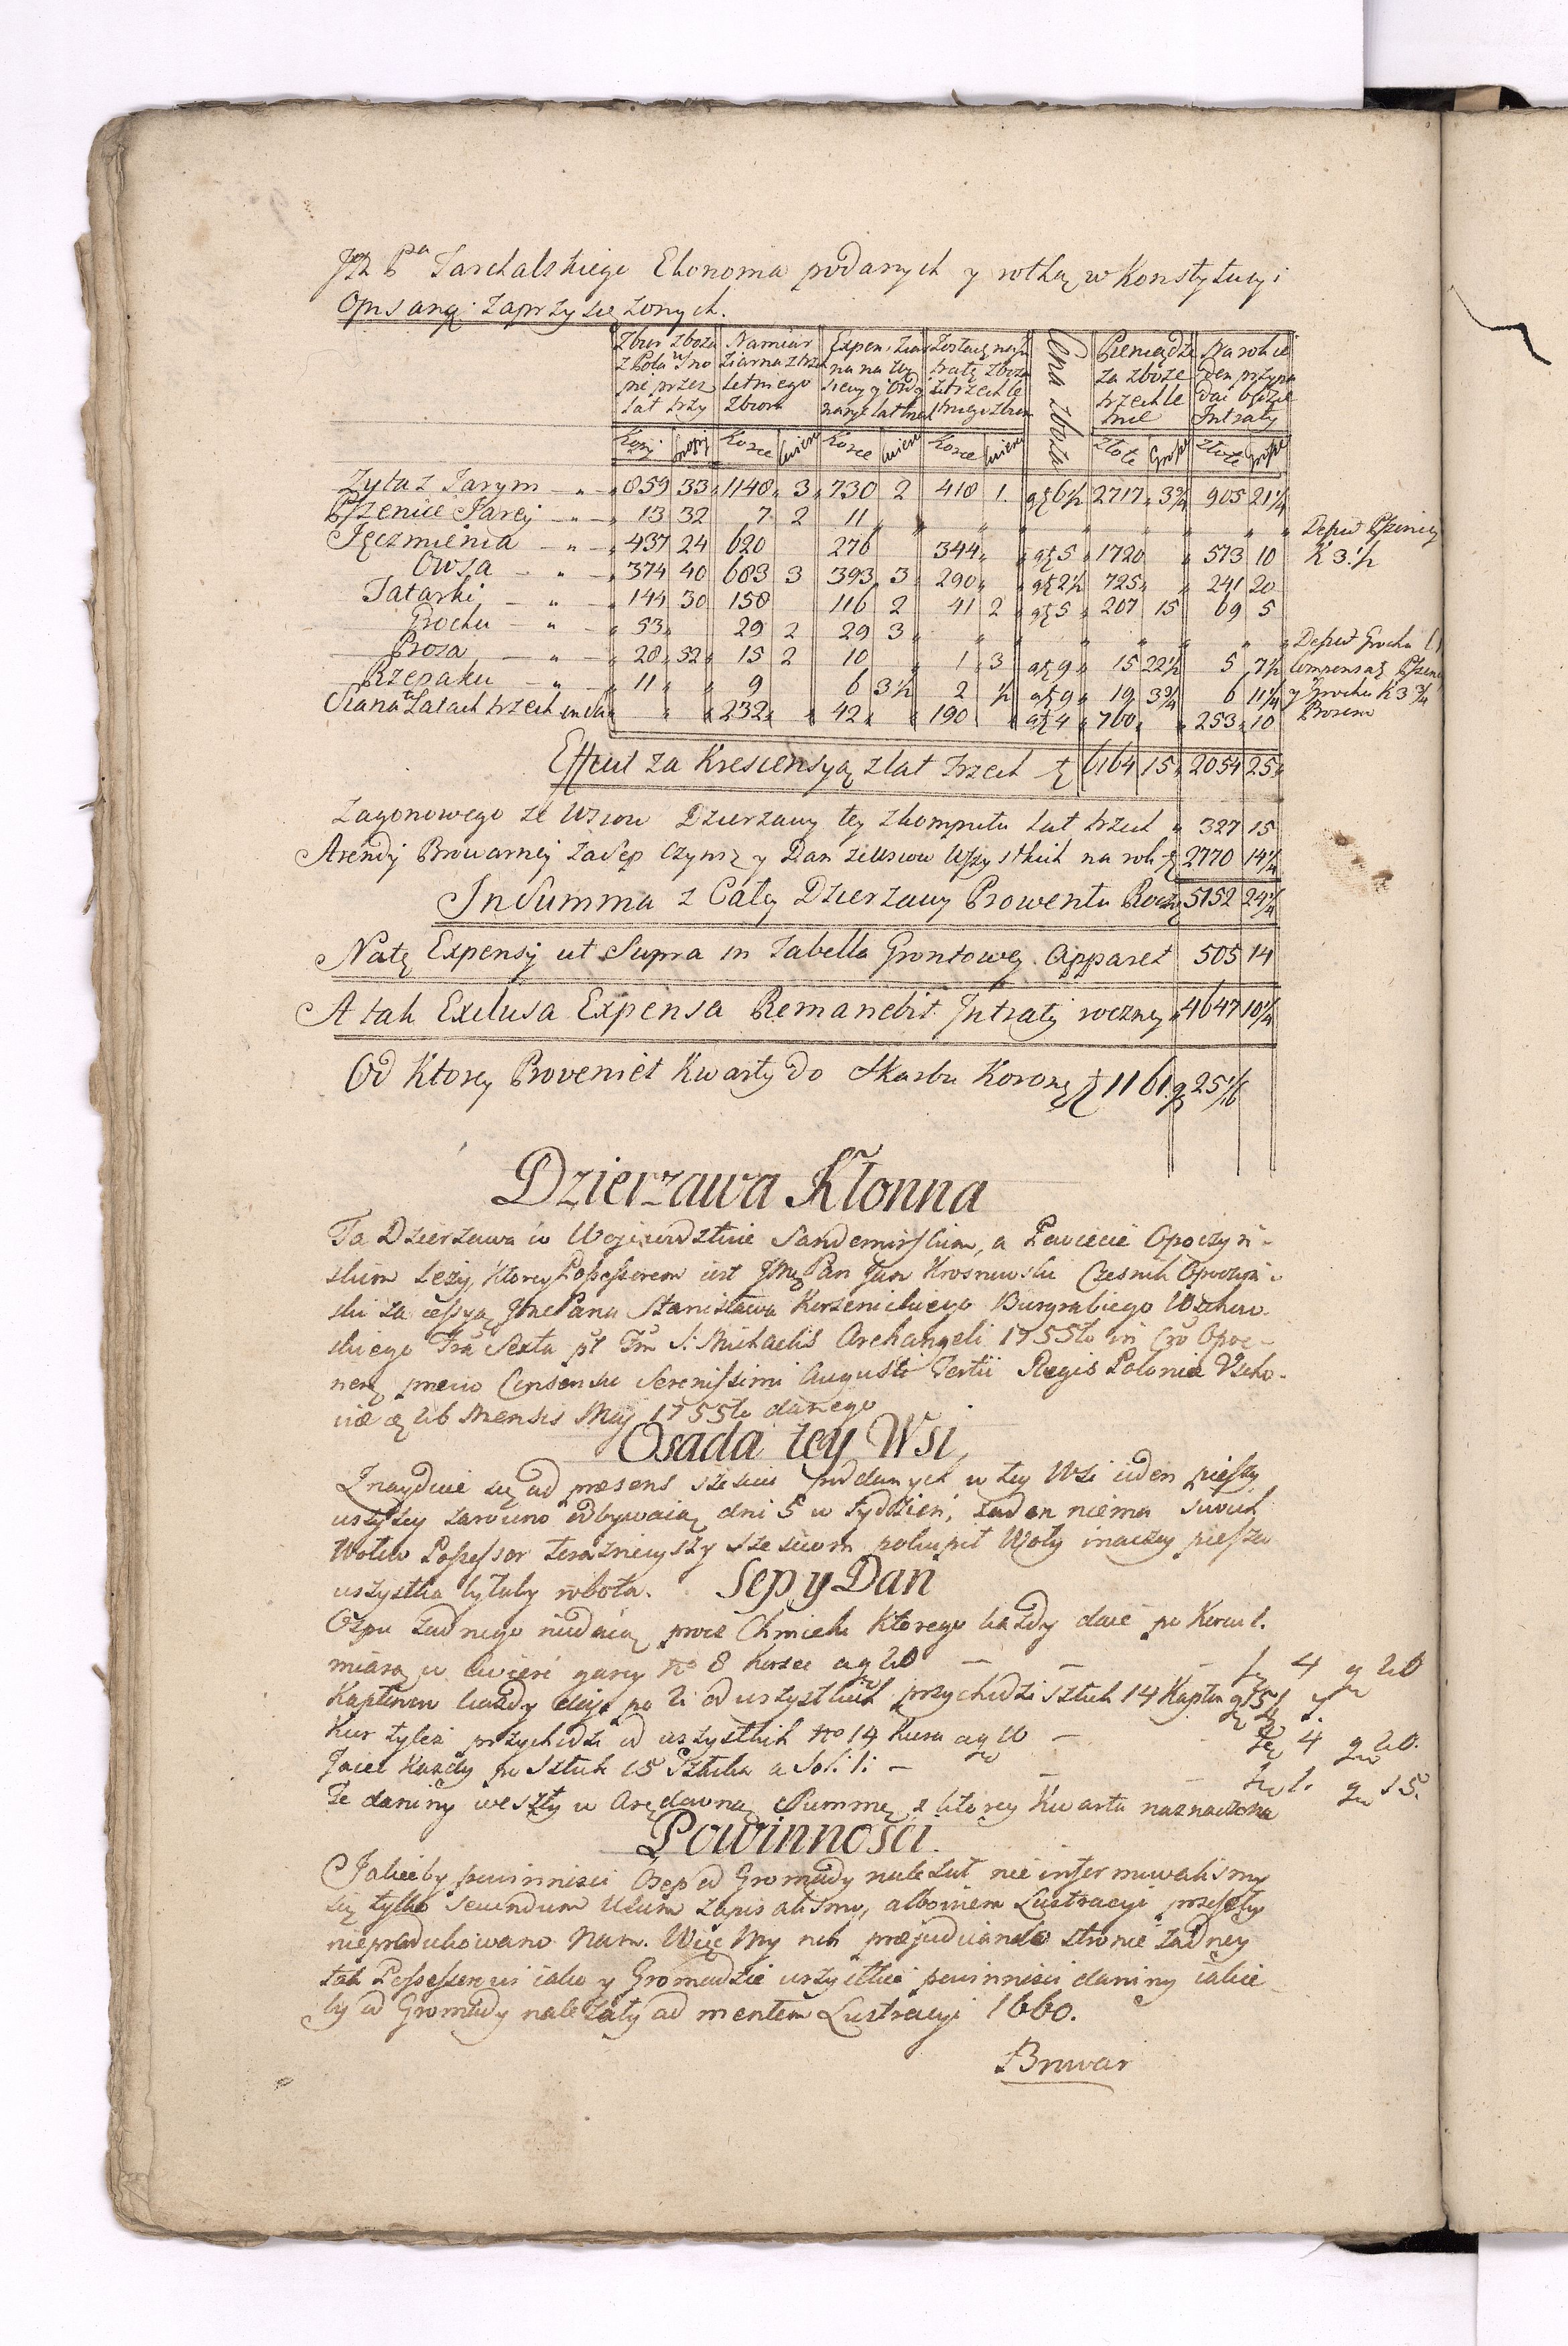 Tarchalskiego Ekonoma podanych y rothą w Konstytucyi
Opisaną zaprzysiężonych.
Zbior zboza z Pola w Sno pie przez lat trzy | Namiar Ziarna z trze letniego zbioru | Expen: Ziar na na | Zostaię na In tratę zboza z trzechle tniego zbioru | Cena zboza | Pieniądze za zboze trzechle tnie | Na rok ie den przypa dać będzie Intraty
Kopy | Snopy | Korce | Cwierc | Korce | Cwierc | Korce | Cwierc | Złote | Grosze | Złote | Grosze
Zyta z Jarym 859 33 1148 3 730 2 418 1 6½ 2717 3¾ 905 21¼
Pszenice Jarej 13 32 7 2 11
Jęczmienia 437 24 620 276 344 5 1720 573 10
Owsa 374 40 683 3 393 3 290 2½ 725 241 20
Tatarki 144 30 158 116 2 41 2 5 207 15 69 5
Grochu 53 29 2 29 3
Prosa 28 32 15 2 10 1 3 9 15 22½ 5 7½
Rzepaku 11 9 6 3½ 2 ½ 9 19 3¾ 6 11¼
Siana w Latach trzech 232 42 190 4 760 253 10
Defect Pszenicy
K 3 ½
Defect Grochu
Compensaę
y Grochu K 3 ¾
Prosem
Effect za Krescensyą z lat trzech 6164 15 2054 25
Zagonowego ze Wsiow Dzierzawy tey z komputu lat trzech 327 15
Arendy Browarnej za Sep Czynsz y Dan ze Wsiow Wszystkich na rok 2770 14¼
In Summa z Całey Dzierzawy Prowentu 5152 24¼
Na tę Expensy ut Supra in Tabella Grontowey Apparet 505 14
A tak Exclusa Expensa Remanebit Intraty roczney 4647 10¼
Od Ktorey Proveniet Kwarty do Skarbu 1161 25 1/16
Dzierzawa Kłonna
Ta Dzierzawa w Woiewodztwie Sandomirskim, a Powiecie Opoczyn-
skim lezy, Ktorey Possessorem iest Pan Jan Krosnowski Czesnik Opoczyn-
ski za cessyą Pana Stanisława Burgrabiego Wschow-
skiego Sexta S. Michaelis Archangeli 1755to in
Consensu Serenissimi Augusti Tertii Regis Poloniæ
26 Mensis Maj 1755to danego
Osada tey Wsi
Znayduie się ad præsens sześciu poddanych w tey Wsi ieden pieszy
wszyscy zarowno odbywaią dni 5 w tydzień, zaden niema swoich
Wołow Possessor teraznieyszy sześciom pokupił Woły inaczey piesza
wszystka byłaby robota.
Sep y Dan
Ospu zadnego niedaią procz Chmielu Ktorego kazdy daie po Korcu 1.
miarą w Cwierc garcy No 8 korsec a g 20 4 g 20
Kapłonow kazdy daie po 2 od wszystkich przychodzi sztuk 14 Kapłon
Kur tylez przychodzi od wszystkich No 14 Kura a g 10 4 g 20.
Jaiec Kazdy po Sztuk 15 Sztuka a Sol: 1: 1. g 15.
Te daniny weszły w Summę z ktorey Kwarta naznaczona
Powinności.
Jakieby powinnisci Osep od Gromady nalezał nie informowalismy
się tylko secundum Usum zapisalismy, albowiem Lustracyi przeszłey
nieprodukowano Nam. Więc My nic præjudicando stronie zadney
tak Possessorowi iako y Gromadzie wszystkie powinnisci daniny iakie
by od Gromady nalezały ad mentem Lustracyi 1660.
Browar